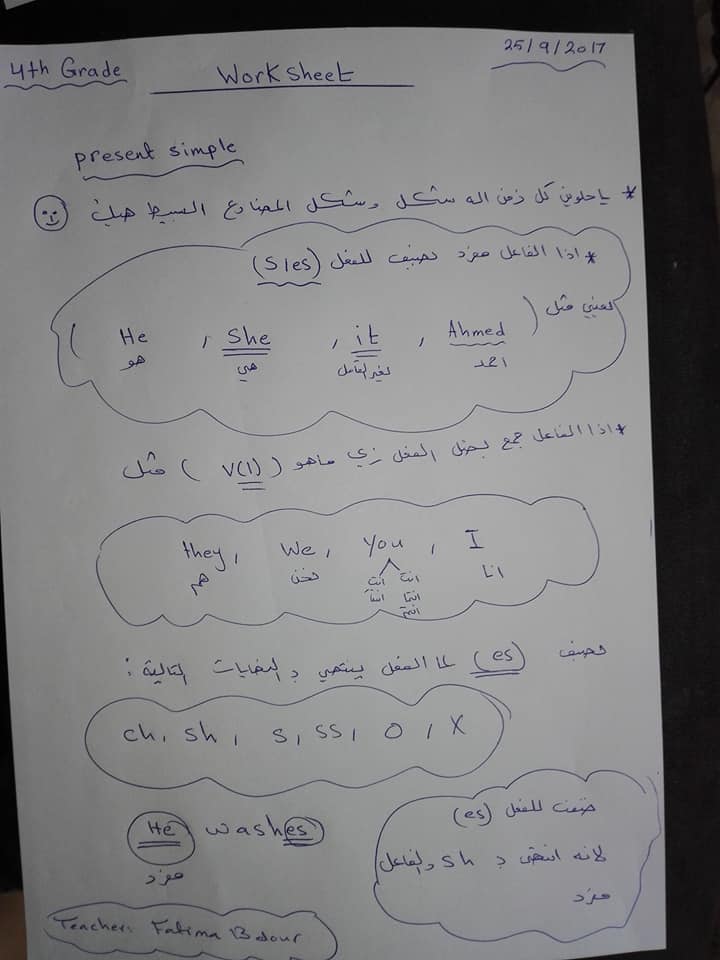 25/9/2017
4th Grade
Worksheet
present simple
* يا حلوين كل زمن اله شكل وشكل المضارع البسيط هيك
* اذا الفاعل مفرد نضيف للفعل (s/es)
يعني مثل ( Ahmed , it , She , He )
احمد لغير العاقل هي هو
* اذا الفاعل جمع بضل الفعل زي ماهو ( V(1) ) مثل
I , You , We , they
انا انتَ انتِ نحن هم
انتما
انتم
نضيف (es) لما الفعل ينتهي بـ النهايات التالية :
ch, sh, s, ss, o, x
He washes
مفرد
ضفت للفعل (es)
لانه انتهى بـ sh والفاعل
مفرد
Teacher: Fatima Bdour